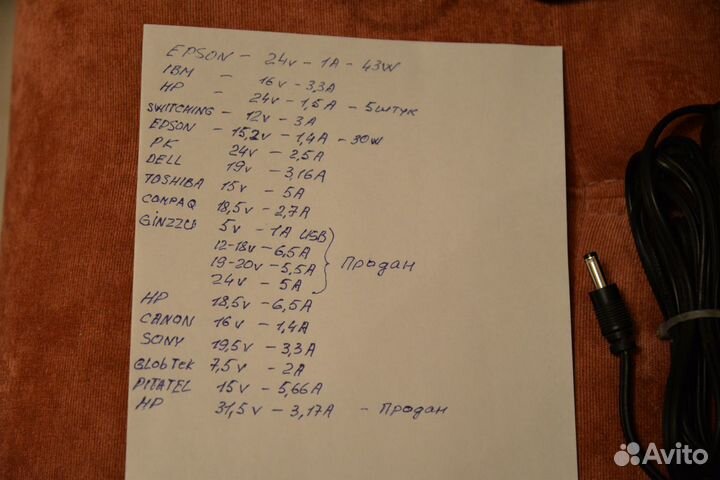 EPSON – 24v – 1A – 43W
IBM – 16v – 3,3A
HP – 24v – 1,5A – 5штук
SWITCHING – 12v – 3A
EPSON – 15,2v – 1,4A – 30W
PK 24v – 2,5A
DELL 19v – 3,16A
TOSHIBA 15v – 5A
COMPAQ 18,5v – 2,7A
GINZZU 5v – 1A USB
12-18v – 6,5A
19-20v – 5,5A
24v – 5A
Продан
HP 18,5v – 6,5A
CANON 16v – 1,4A
SONY 19,5v – 3,3A
GlobTek 7,5v – 2A
PITATEL 15v – 5,66A
HP 31,5v – 3,17A – Продан
Avito